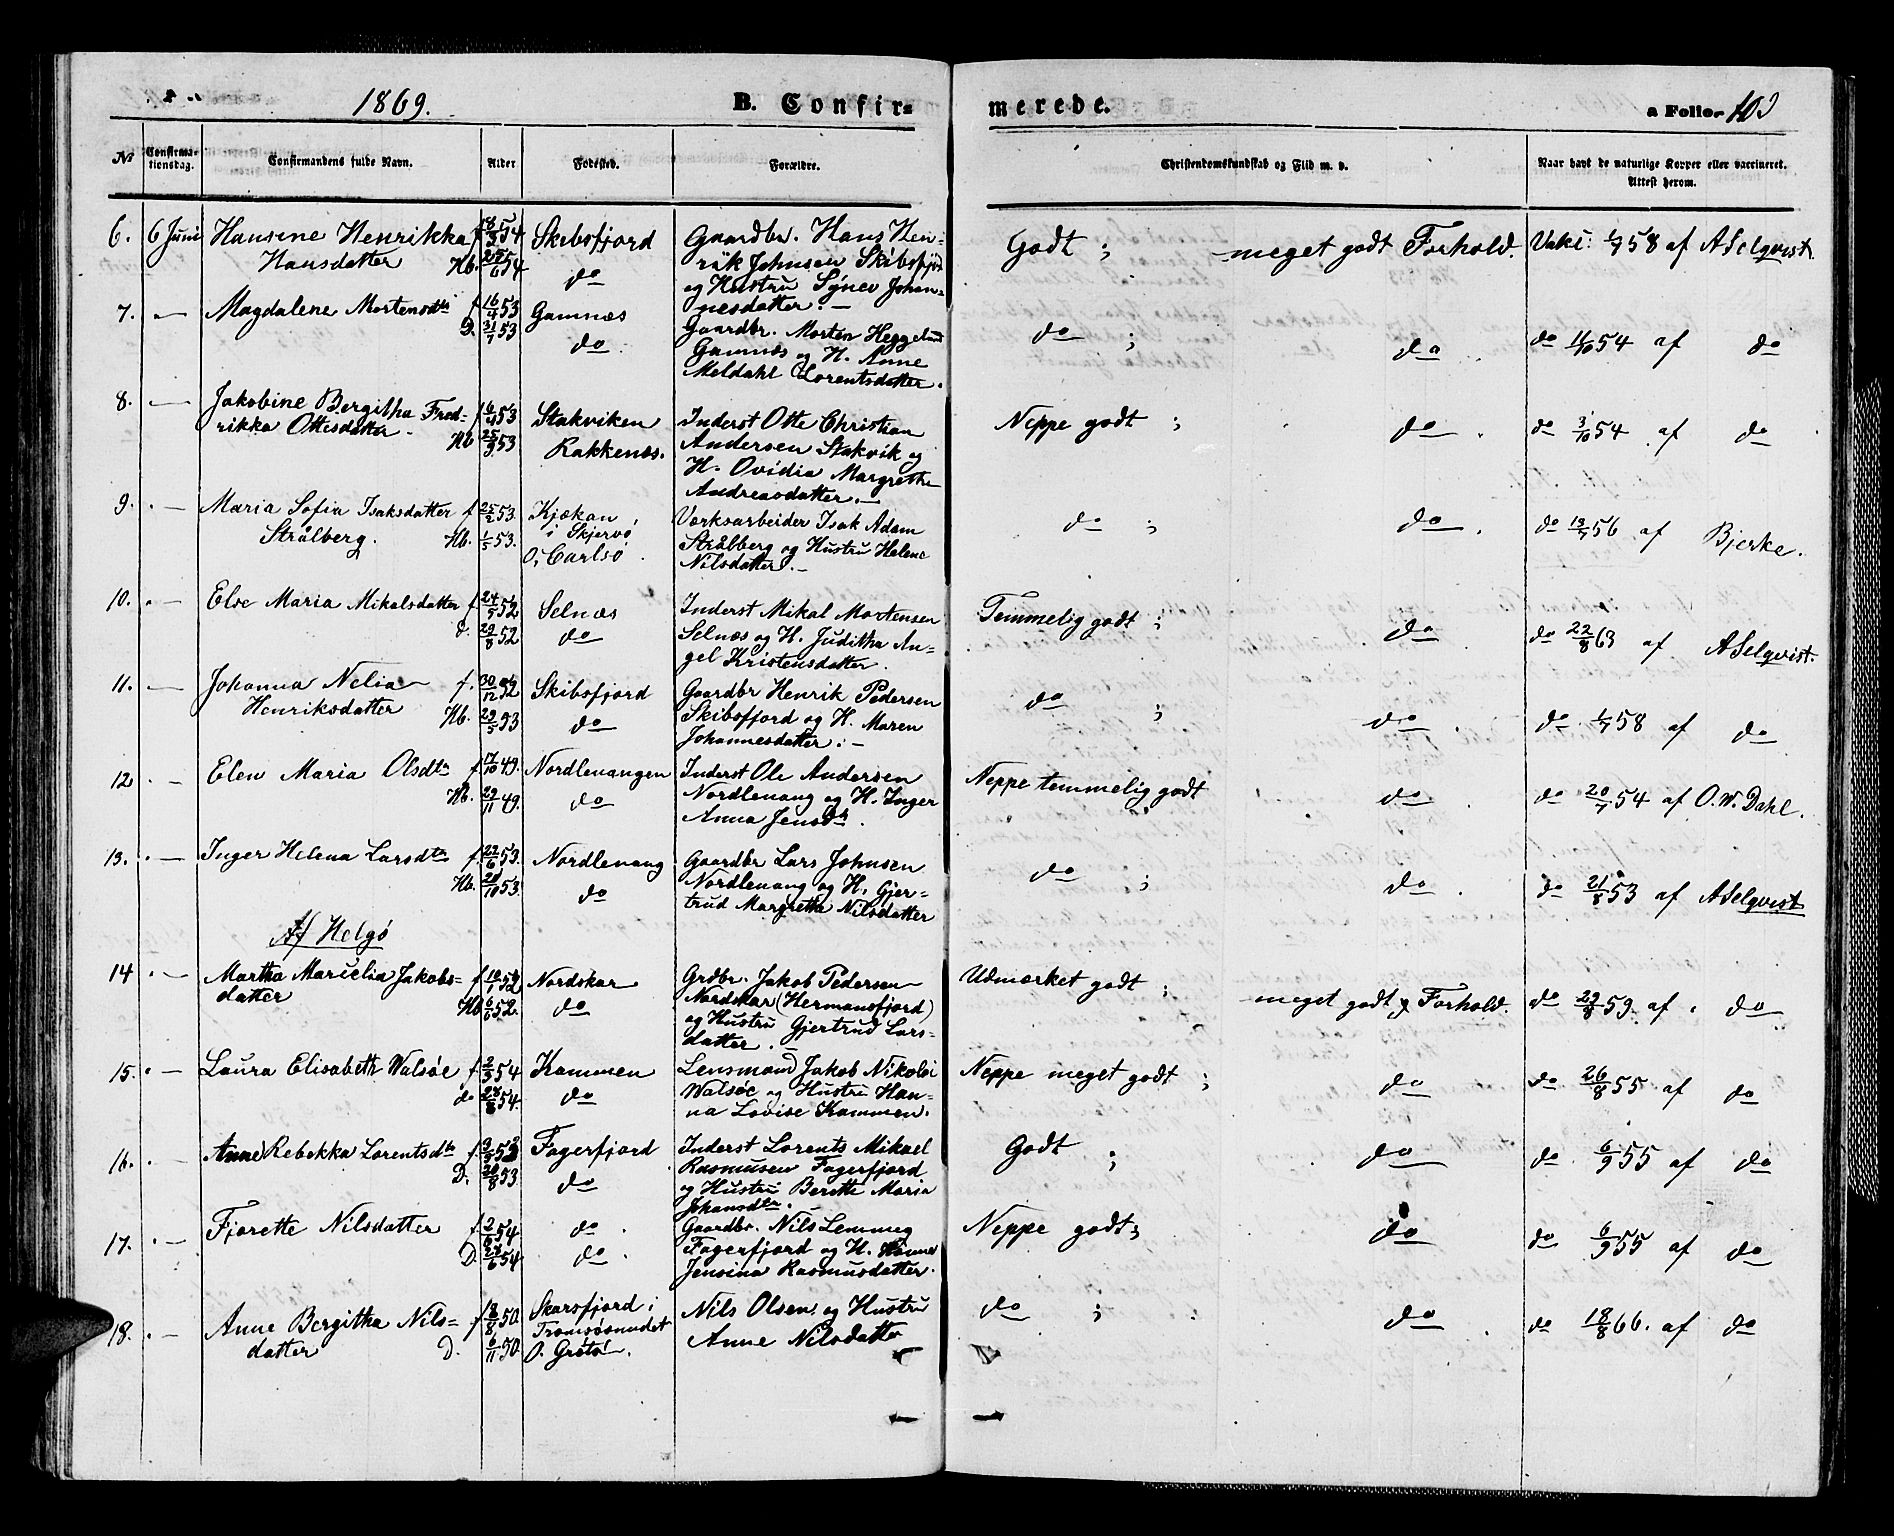 1869. B. Confir=
merede. a Folio 103
No Confirmationsdag. Confirmandens fulde Navn. Alder Fødested. Forældre. Christendomskundskab og Flid m. v. Naar havt de naturlige Kopper eller vaccineret. Attest herom.
6. 6 Juni Hansine Henrikka f. Skibsfjord Gaardbr. Hans Hen- Godt ; meget godt Forhold. Vakc: 1/7 58 af A Selqvist.
Hansdatter Hb. do rik Johnsen Skibsfjord
og Hustru Synev Johan-
nesdatter. –
7. " — Magdalene Mortensdtr f. 16/4 53 Gamnæs Gaardbr. Morten Heggelund do ; do . do 11/10 54 af do
D. 31/7 53 do . Gamnæs og H. Anne
Meldahl Lorentsdatter.
8. " — Jakobine Bergitha Fred- f. 6/4 53 Stakviken Inderst Otte Christian Neppe godt ; do . do 3/10 54 af do
rikka Ottesdatter Hb 25/9 53 Rakkenæs. Andersen Stakvik og
H. Ovidia Margrethe
Andreasdatter. –
9. " — Maria Sofia Isaksdatter f 25/2 53. Kjækan Værksarbeider Isak Adam do ; do . do 13/7 56 af Bjerke.
Strålberg. Hb. 1/5 53. i Skjervø Strålberg og Hustru Helene
O, Carlsø . Nilsdatter. –
10. " — Else Maria Mikalsdatter f. 24/5 52 Selnæs Inderst Mikal Mortensen Temmelig godt ; do do 22/8 63 af A Selqvist.
d. 29/8 52 do Selnæs og H. Juditha An-
gel Kristensdatter.
11. " — Johanna Nelia f. 30/12 52 Skibsfjord Gaardbr Henrik Pedersen do ; do . do 1/7 58 af do
Henriksdatter Hb. 29/5 53 do Skibsfjord og H. Maren
Johannesdatter. –
12 " — Elen Maria Olsdtr f. 17/10 49. Nordlenangen Inderst Ole Andersen Neppe temmelig godt do . do 20/7 54 af O. W. Dahl.
Hb. 29/11 49. do Nordlenang og H. Inger
Anna Jensdtr .
13. " — Inger Helena Larsdtr f. 22/6 53. Nordlenang Gaardbr Lars Johnsen do ; do . do 21/8 53 af A Selqvist
Hb. 20/10 53 do Nordlenang og H. Gjer-
trud Margretha Nilsdatter
Af Helgø
14 " — Martha Marielia Jakobs= f. 52 Nordskar Grdbr. Jakob Pedersen Udmærket godt ; meget godt Forhold. do 29/8 59. af do
datter Hb 52. do Nordskar (Hermansfjord)
og Hustru Gjertrud Lars-
datter . –
15. " — Laura Elisabeth Walsøe f. 2/3 54 Kammen Lensmand Jakob Nikolai Neppe meget godt ; do do 26/8 55 af do
do 54. do Walsøe og Hustru Han-
na Lovise Kammen.
16. " — Anne Rebekka Lorentsdtr f. 53 Fagerfjord Inderst Lorents Mikael Godt ; do do 6/9 55 af do
D. 20/8 53 do Rasmusen Fagerfjord
og Hustru Berethe Maria
Johansdtr. –
17. " — Fjorette Nilsdatter f. 54 do . Gaardbr. Nils Lemmeg Neppe godt; do do 6/9 55 af do
D. 54 do . Fagerfjord og H. Hanna
Jensina Rasmusdatter.
18. " — Anne Bergitha Nils= f. 18/8 50. Skarsfjord i Nils Olsen og Hustru do ; do . do 18/8 66. af do
datter D. 6/11 50. Tromsøsundet Anne Nilsdatter
O. Grøtø.